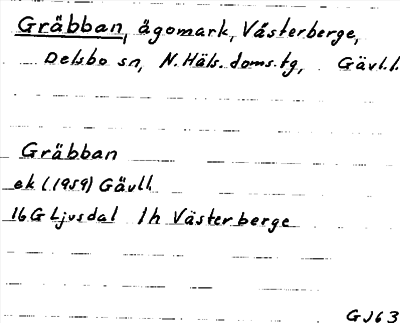 Gräbban, ägomark, Västerberge,
Delsbo sn, N. Häls. doms. tg, Gävl.l.
Gräbban
ek (1959) Gävll
16G Ljusdal 1h Västerberge
GJ63